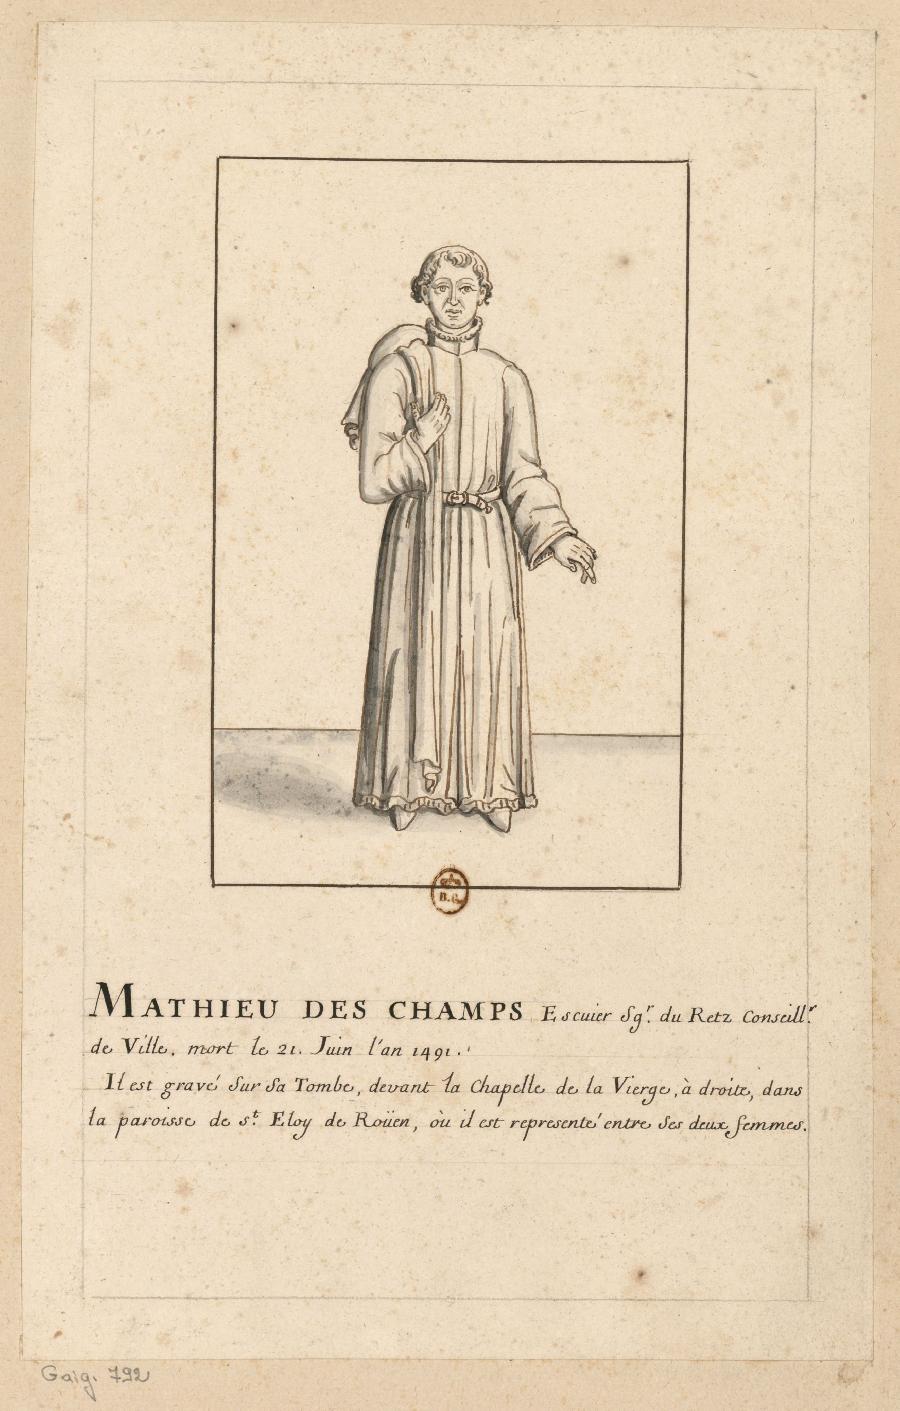 B.R.
MATHIEU DES CHAMPS Escuier Sgr. du Retz Conseillr.
de Ville, mort le 21. Juin l'an 1491.
Il est gravé sur sa Tombe, devant la Chapelle de la Vierge, à droite, dans
la paroisse de st. Eloy de Roüen, où il est representé entre ses deux femmes.
Gaig. 792